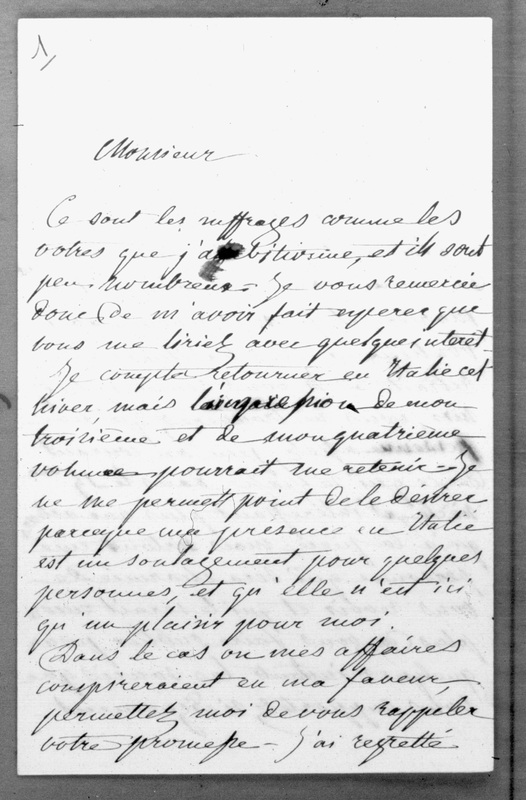 1,
Monsieur
Ce sont les suffrages comme les
votres que j'ambitionne, et ils sont
peu nombreux - Je vous remercie
donc de m'avoir fait esperer que
vous me liriez avec quelque interet -
Je compte retourner en Italie cet
hiver, mais l'impression de mon
troisième et de mon quatrième
volume pourrait me retenir - Je
ne me permets point de le désirer
parceque ma présence en Italie
est un soulagement pour quelques
personnes, et qu'elle n'est ici
qu'un plaisir pour moi.
Dans le cas ou mes affaires
conspireraient en ma faveur,
permettez moi de vous rappeler
votre promesse - J'ai regretté